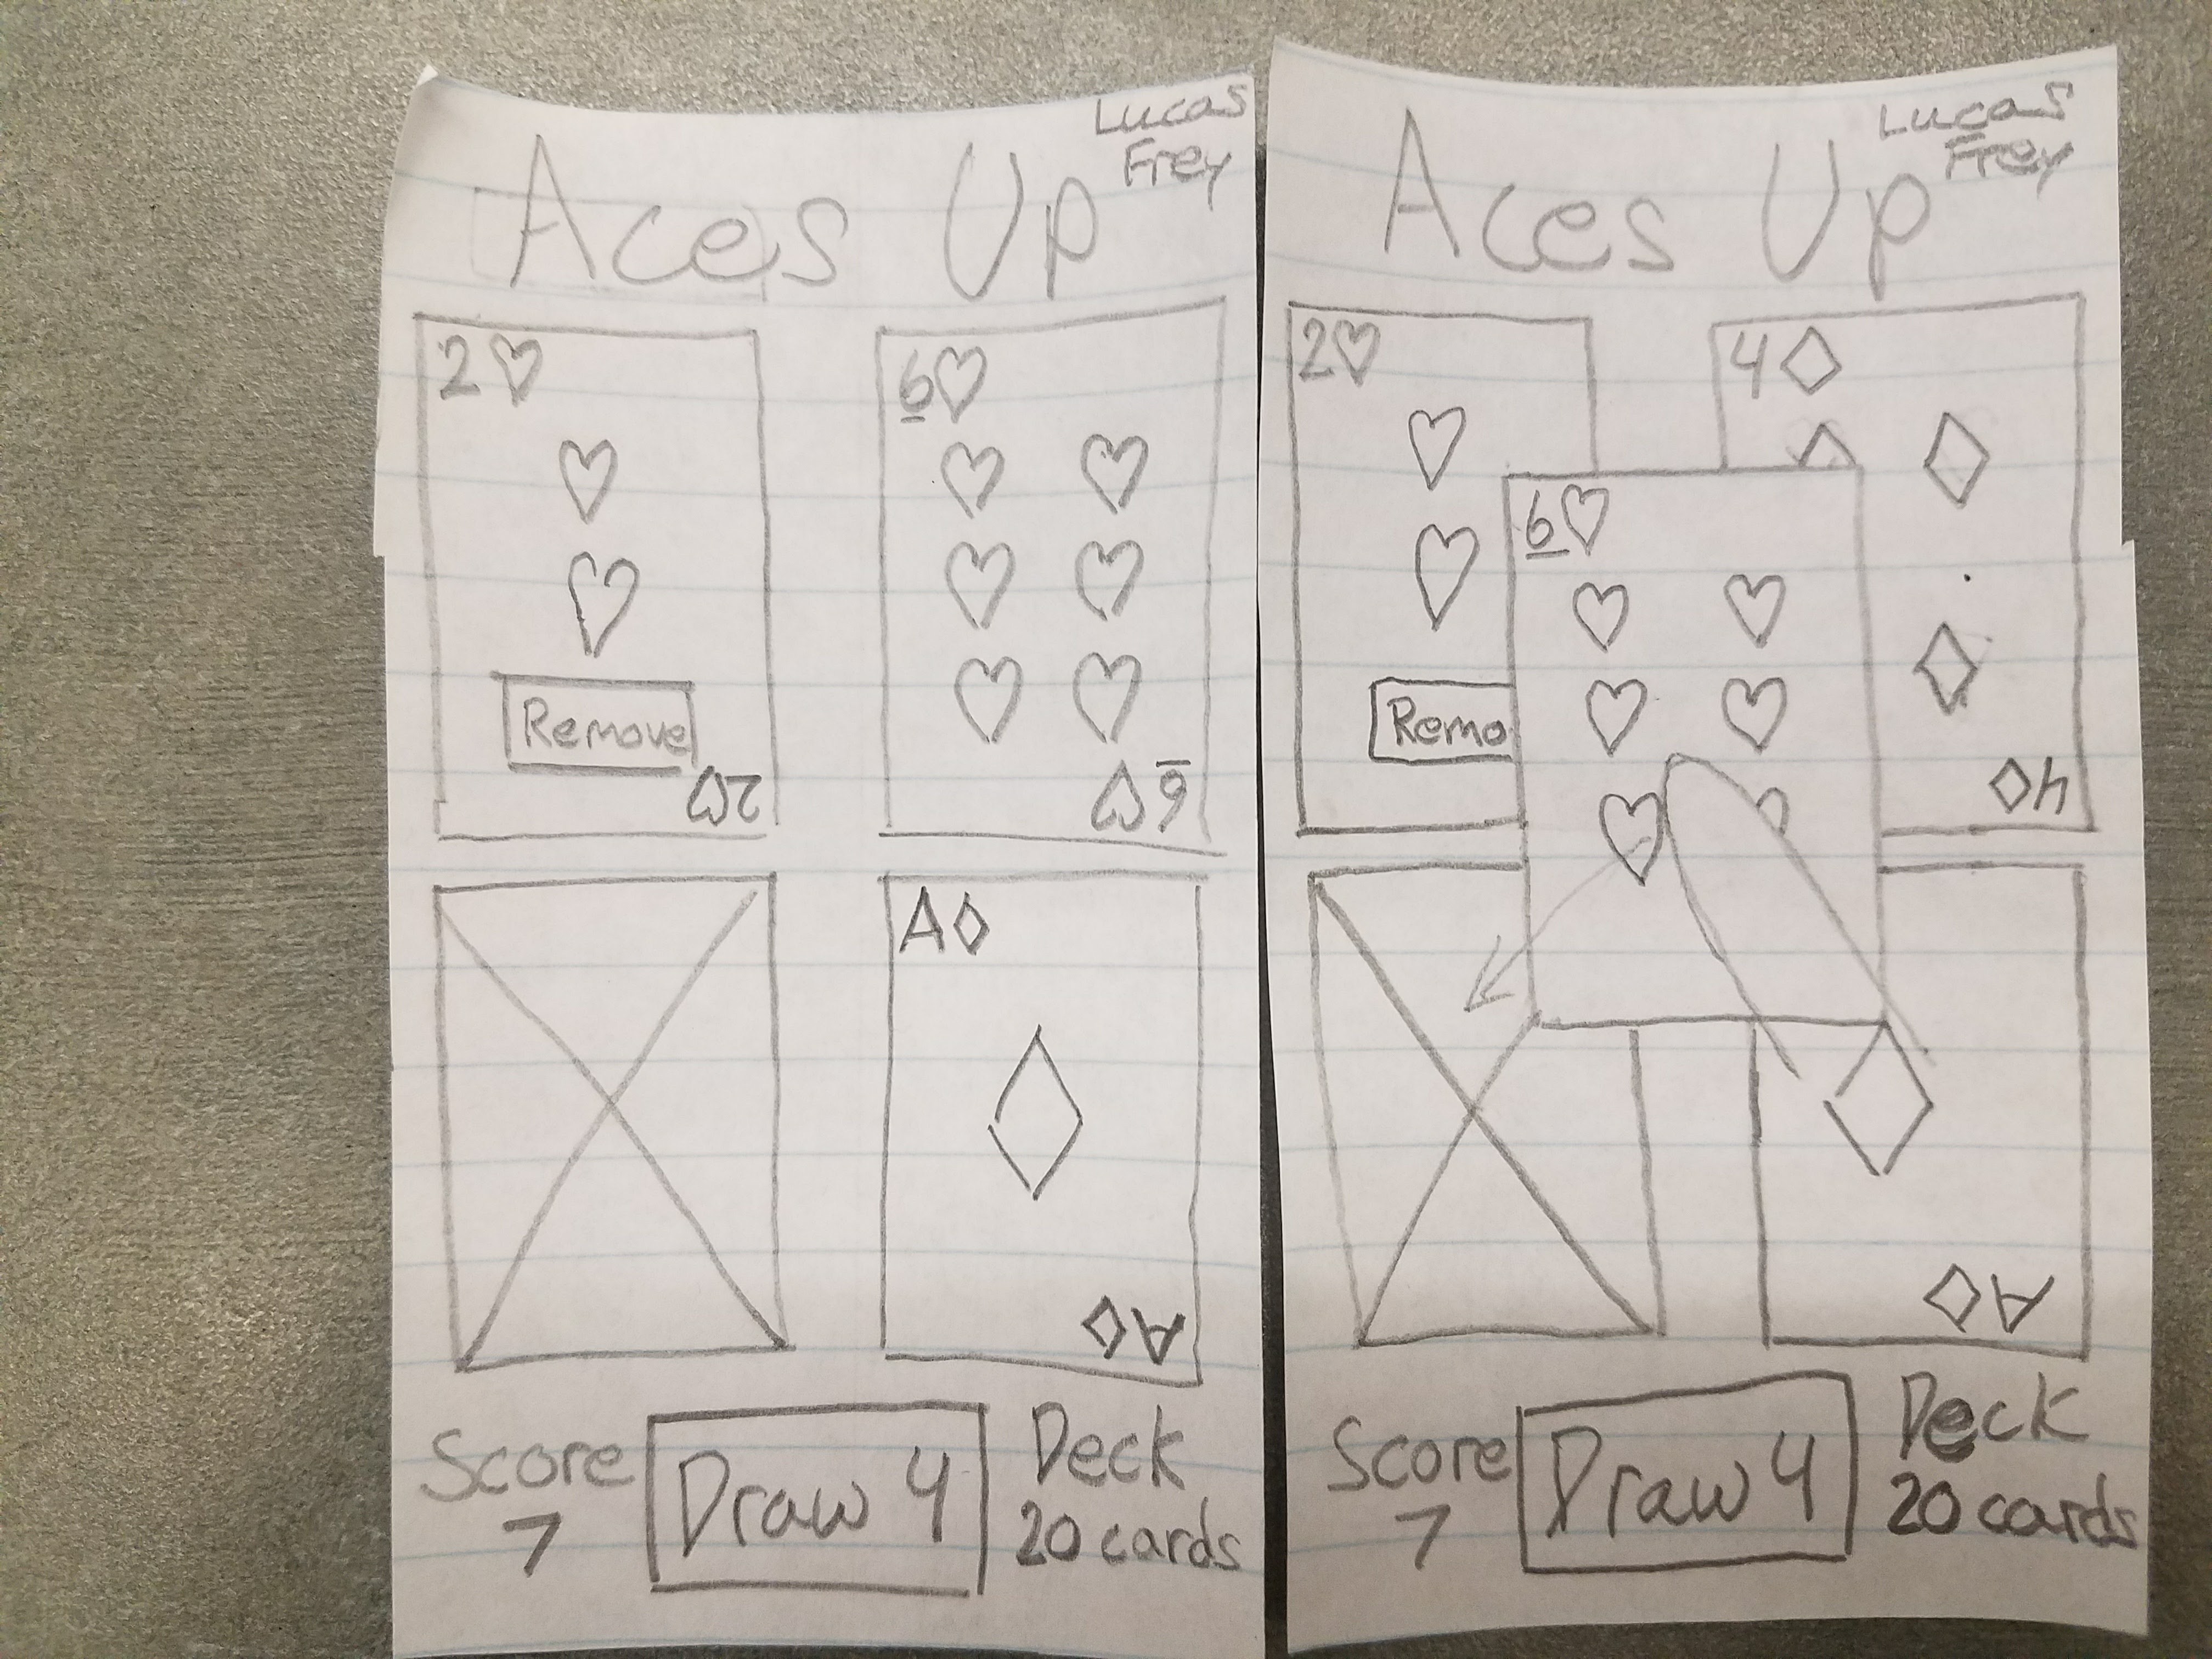 Lucas
Frey
Aces Up
2♡
6♡
Remove
2♡
6♡
A♢
A♢
Score
7
Draw 4
Deck
20 cards
Lucas
Frey
Aces Up
2♡
4♢
6♡
Remo
4♢
A♢
Score
7
Draw 4
Deck
20 cards